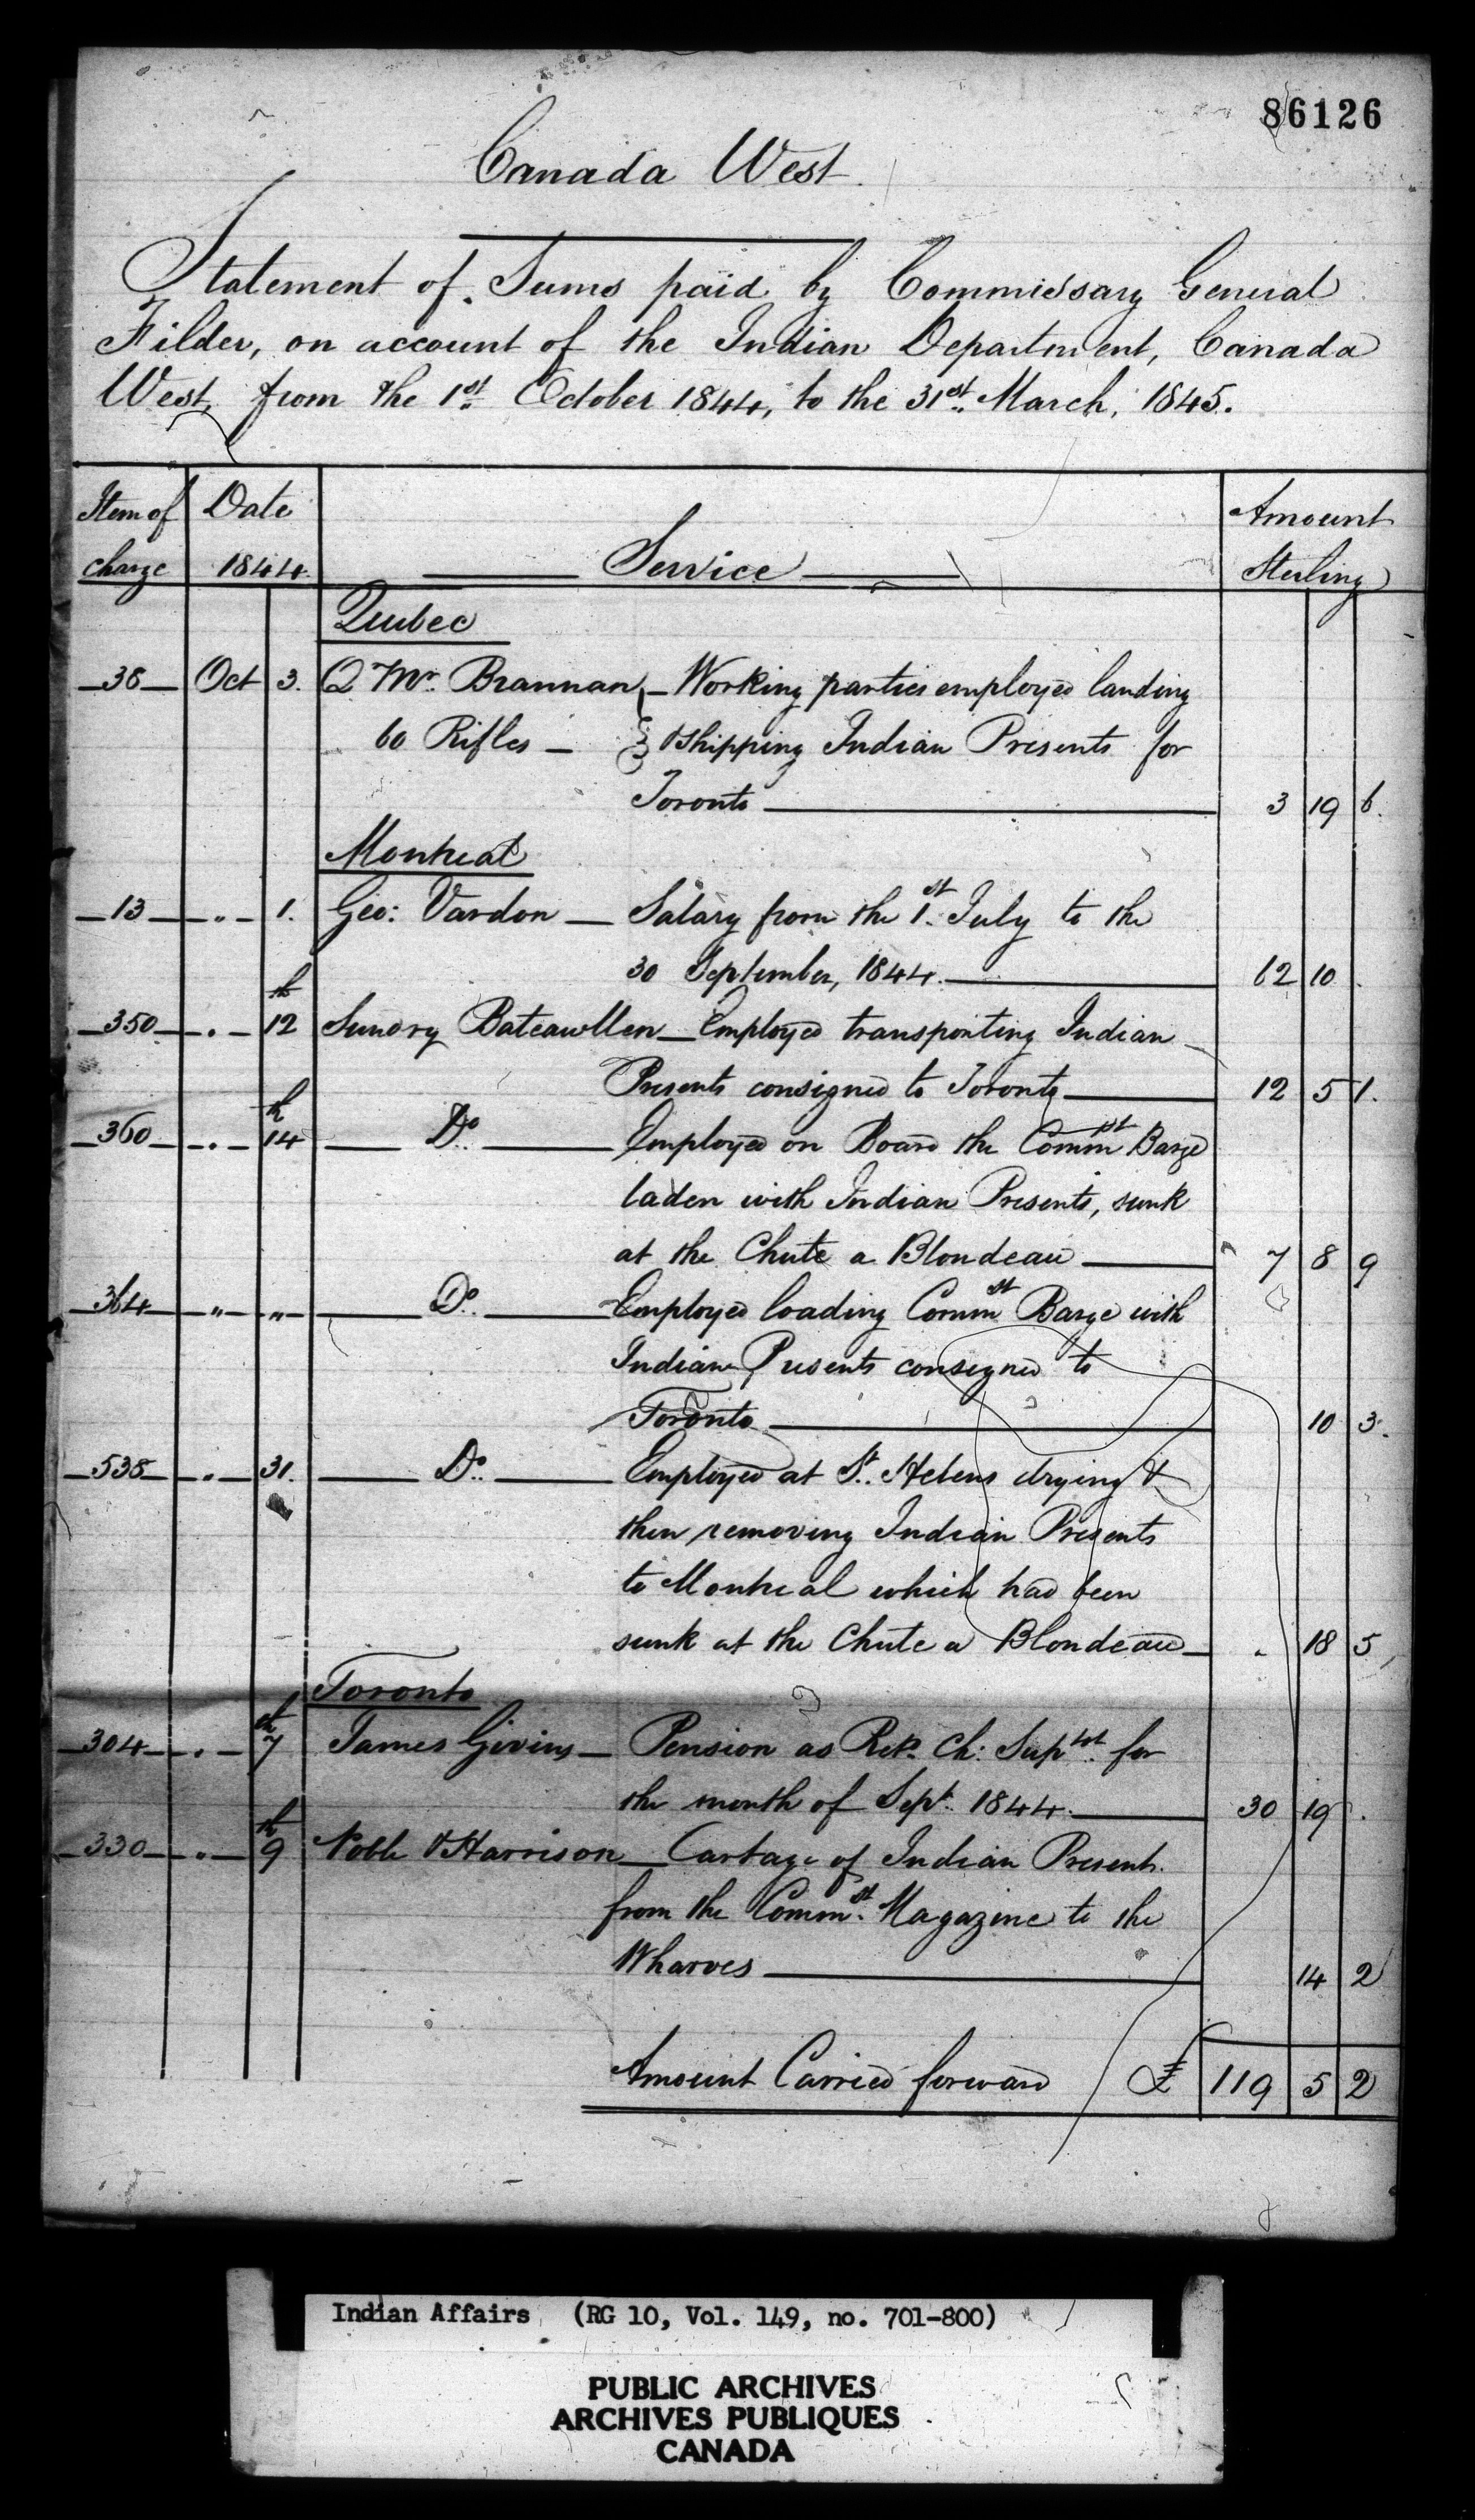 86126
Canada West
Statement of Sums paid by Commissary General
Filder, on account of the Indian Department, Canada
West, from the 1st October 1844, to the 31st March, 1845.
Item of charge Date 1844 Service Amount Sterling
Quebec
38 Oct 3. Q Mr. Brannan, Working parties employed landing
60 Rifles & shipping Indian Presents for
Toronto 3 19 6.
Montreal
13 " 1. Geo: Vardon Salary from the 1st July to the
30 September, 1844. 62 10 .
350 " 12th Sundry Bateauxmen Employed transporting Indian
Presents consigned to Toronto 12 5 1.
360 " 14th Do. Employed on Board the Commst Barge
laden with Indian Presents, sunk
at the Chute a Blondeau 7 8 9
364 " " Do. Employed loading Commst Barge with
Indian Presents consigned to
Toronto 10 3.
538 " 31. Do. Employed at St. Helens drying &
then removing Indian Presents
to Montreal which had been
sunk at the Chute a Blondeau " 18 5
Toronto
304 " 7th James Givins Pension as Retd. Ch: Suptdt. for
the month of Sept. 1844. 30 19 .
330 " 9th Noble & Harrison Cartage of Indian Presents
from the Commst. Magazine to the
Wharves 14 2
Amount Carried forward £ 119 5 2
Indian Affairs (RG 10, Vol. 149, no. 701-800)
PUBLIC ARCHIVES
ARCHIVES PUBLIQUES
CANADA